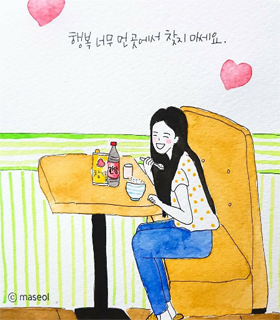 행복 너무 먼 곳에서 찾지 마세요.
ⓒ maseol